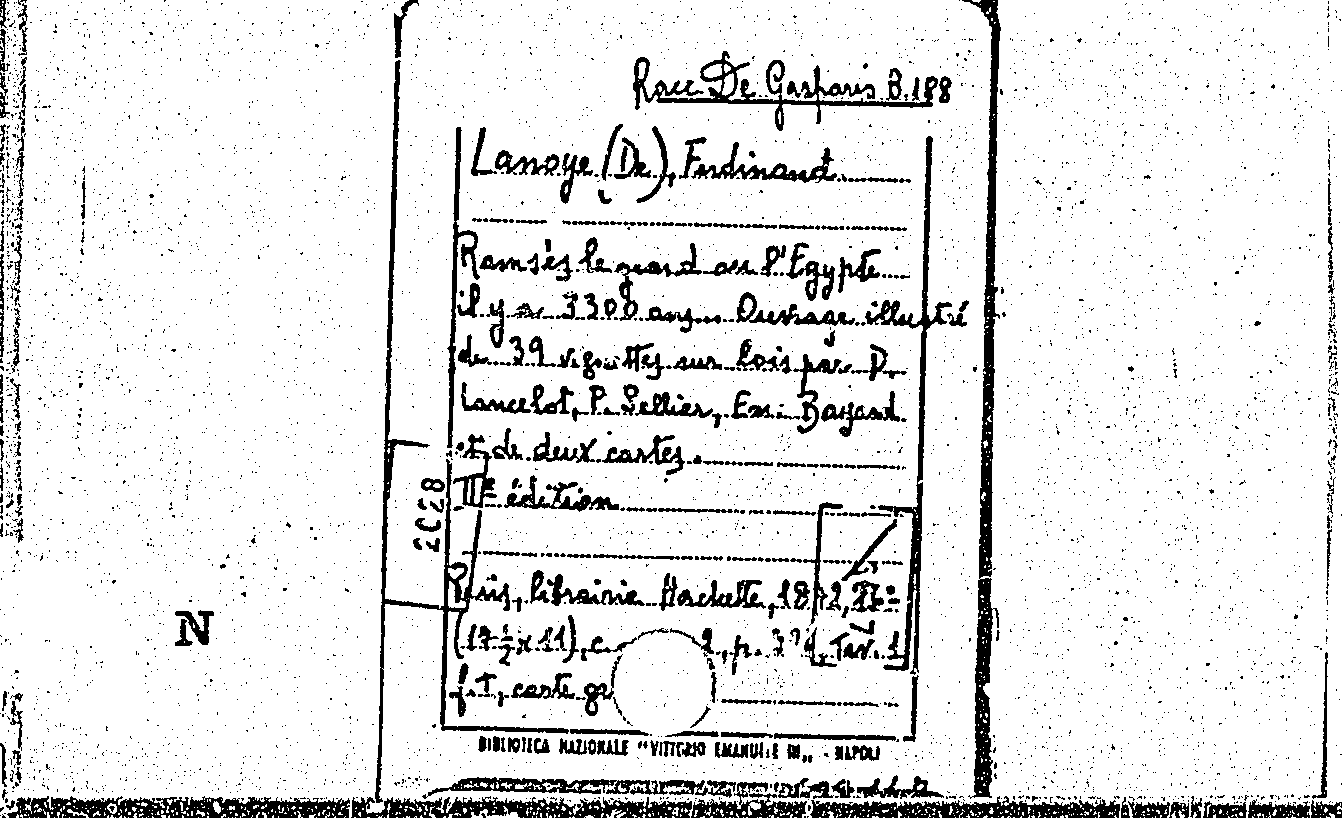 Racc. De Gasparis B. 188
Lanoye (De), Ferdinand
Ramsès le grand ou l'Egypte
il y a 3300 ans... Ouvrage illustré
de 39 vignettes sur bois par D.
Lancelot, P. Sellier, Em. Bayard
et de deux cartes.
IIe édition
2028
Paris, librairie Hachette, 1872,
N
(17 1/2 x 11), c. 2, p. Tav. 1
f. T, carte
BIBLIOTECA NAZIONALE "VITTORIO EMANUELE III" - NAPOLI